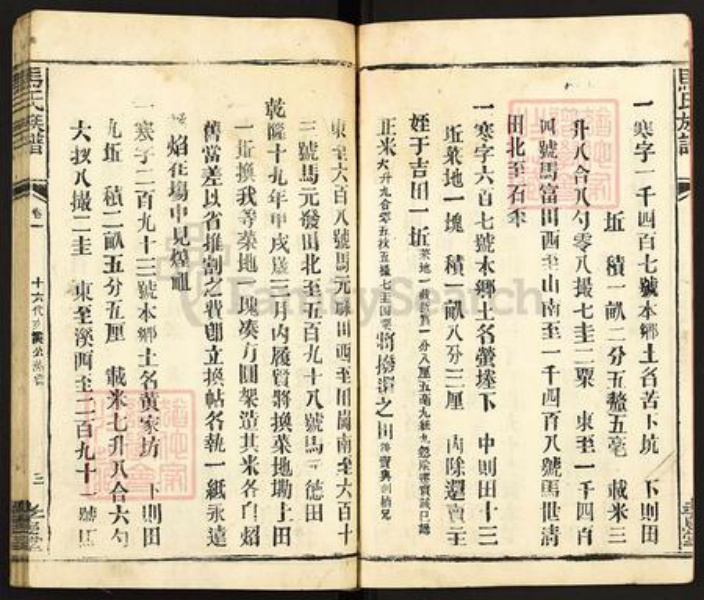 馬氏族譜
一寒字一千四百七號本鄉土名苦下坑 下則田
坵 積一畝二分五釐五毫 載米三
升八合八勺零八撮七圭二粟 東至一千四百
四號馬富田西至山南至一千四百八號馬世清
田北至石
一寒字六百七號本鄉土名螢墀下 中則田十三
坵菜地一塊 積一畝八分三厘 內除還賣
姪于吉田一坵
正米 將撥潤之田
東至六百八號馬元 田西至田崗南至六百十
三號馬元發田北至五百九十八號馬元德田
乾隆十九年甲戌歲三月內履賢將換菜地 上田
一坵換我等菜地一塊湊方圓架造其米各自炤
舊當差以省推割之費卽立換帖各執一紙永遠
炤在場中見煌
一寒字二百九十三號本鄉土名黃家坊 下則田
九坵 積二畝五分五厘 載米七升八合六勺
六抄八撮二圭 東至溪西至二百九十一號馬
馬氏族譜
卷一
十六代
FamilySearch